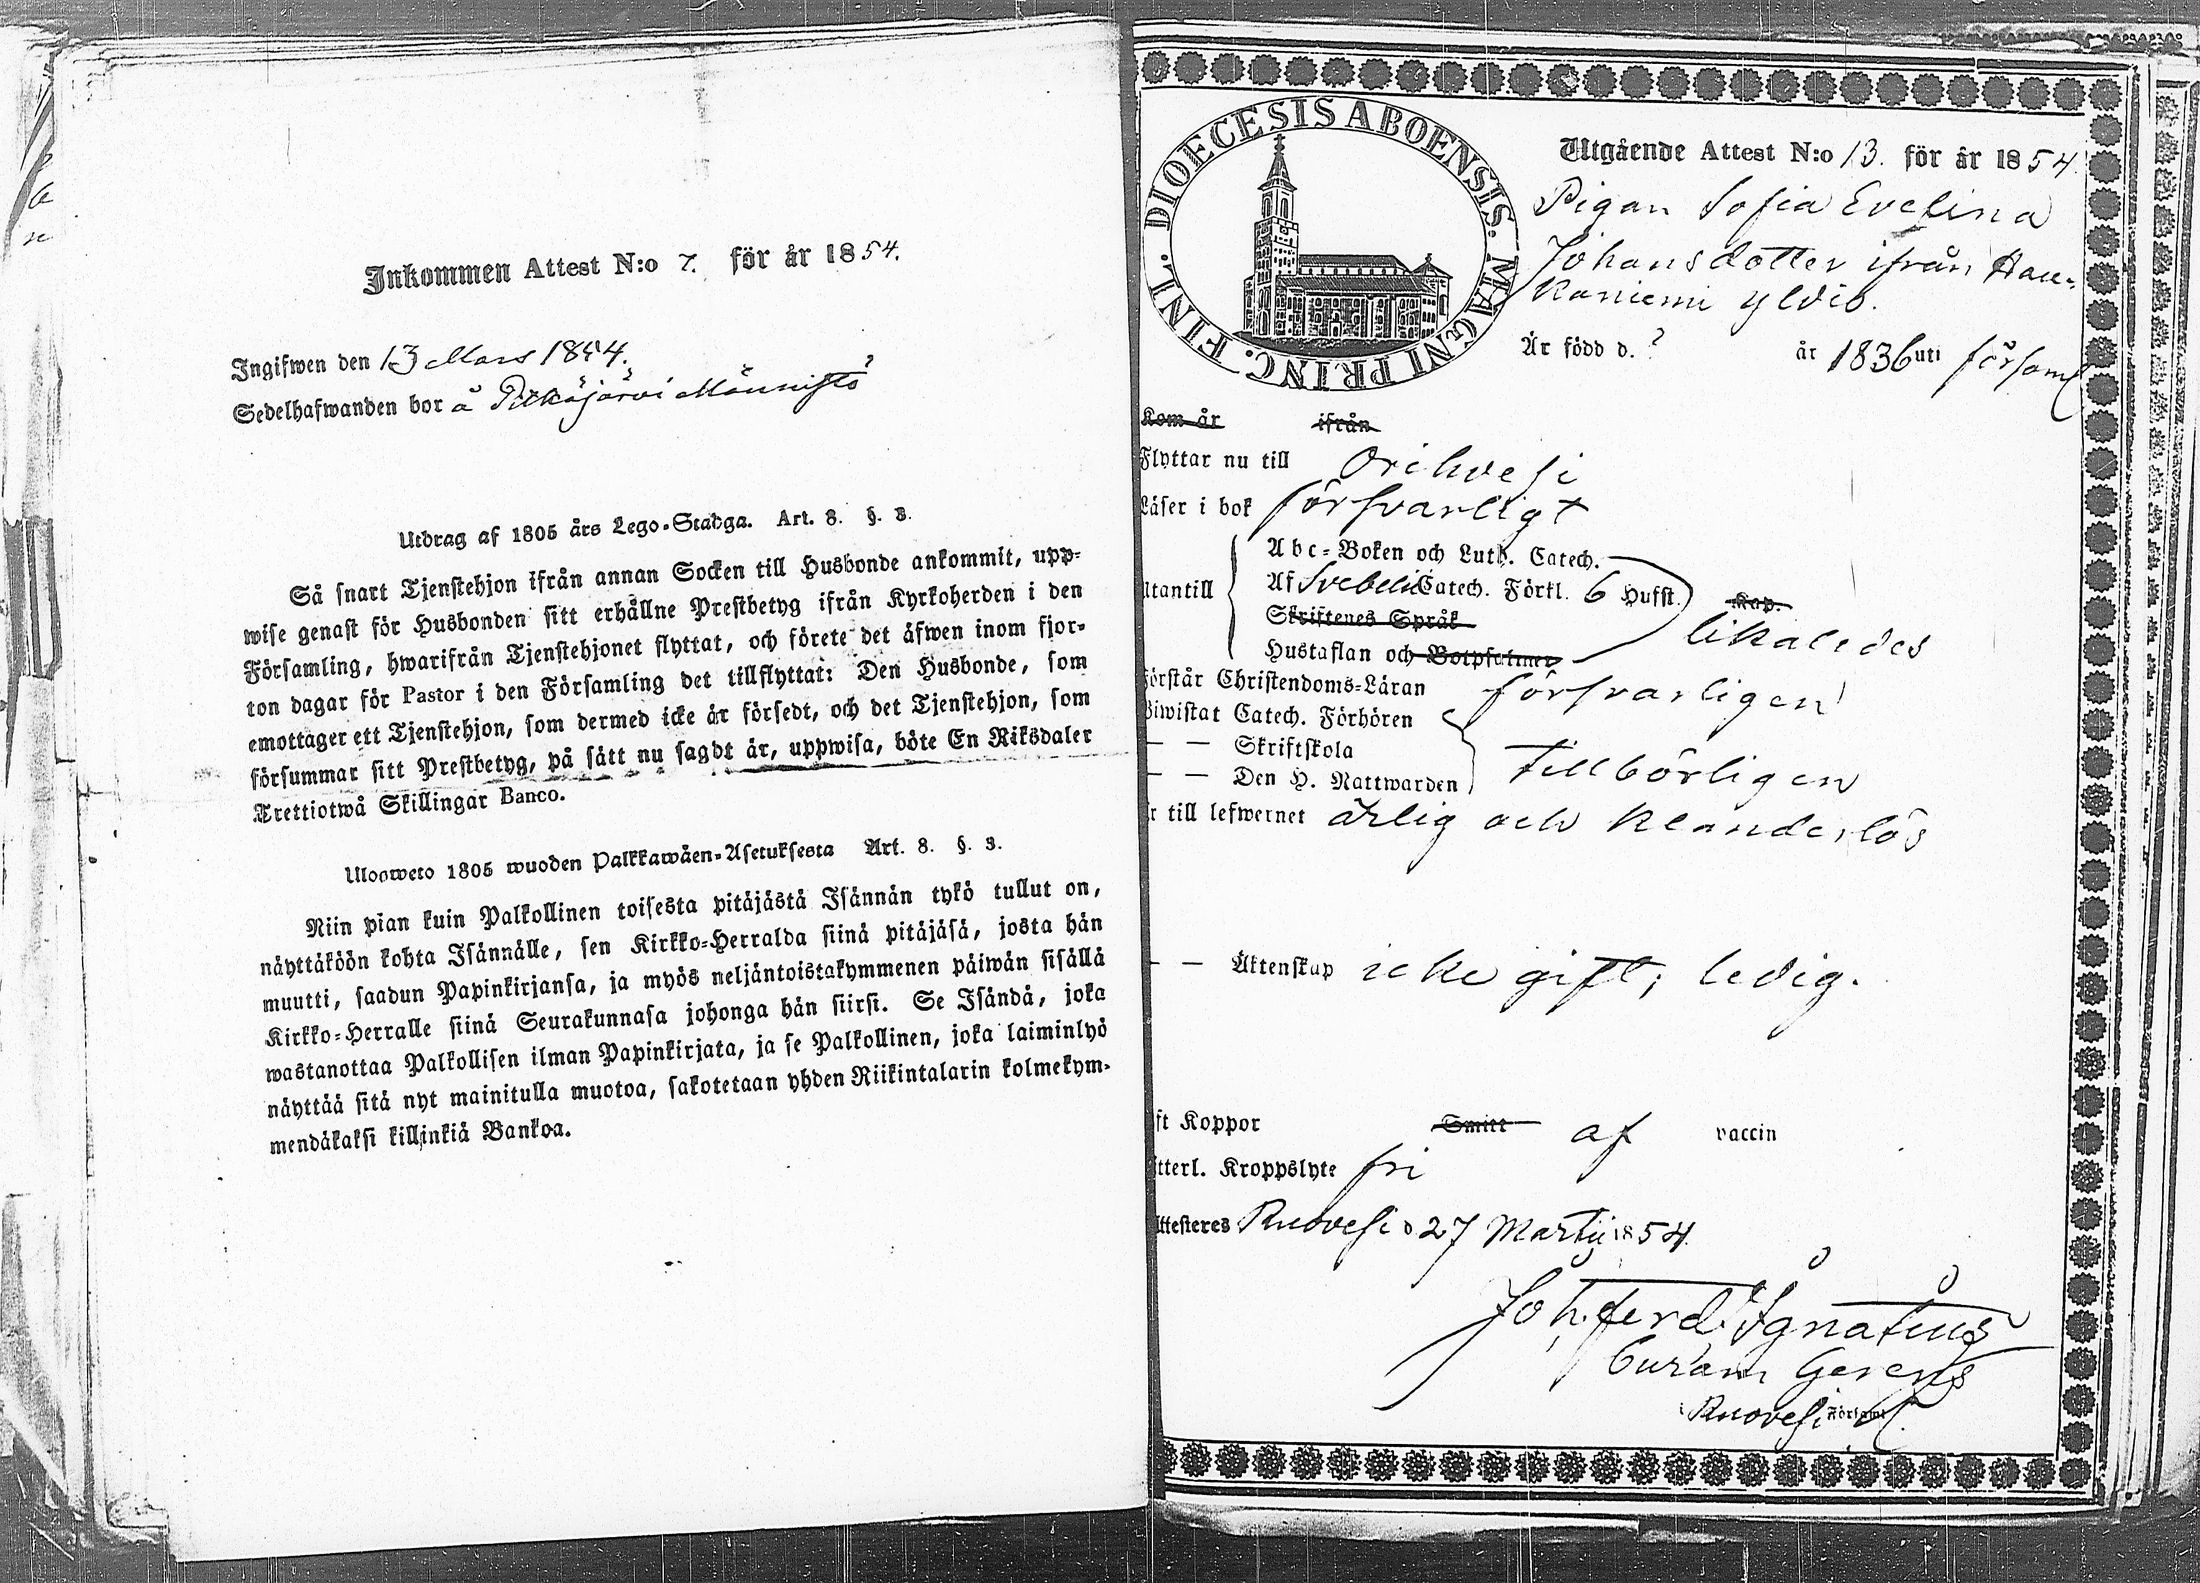 Inkommen Attest N:o 7. för år 1854.
Ingifwen den 13 Mars 1854.
Sedelhafwanden bor å Pitkäjärvi Männistö
Utdrag af 1805 års Lego-Stadga. Art. 8. §. 3.
Så snart Tjenstehjon ifrån annan Socken till Husbonde ankommit, upp-
wise genast för Husbonden sitt erhållne Prestbetyg ifrån Kyrkoherden i den
Församling, hwarifrån Tjenstehjonet flyttat, och förete det äfwen inom fjor-
ton dagar för Pastor i den Församling det tillflyttat: Den Husbonde, som
emottager ett Tjenstehjon, som dermed icke är försedt, och det Tjenstehjon, som
försummar sitt Prestbetyg, på sätt nu sagdt är, uppwisa, böte En Riksdaler
Trettiotwå Skillingar Banco.
Uloosweto 1805 wuoden Palkkawäen-Asetuksesta Art. 8. §. 3.
Niin pian kuin Palkollinen toisesta pitäjästä Isännän tykö tullut on,
näyttäköön kohta Isännälle, sen Kirkko-Herralda siinä pitäjäsä, josta hän
muutti, saadun Papinkirjansa, ja myös neljäntoistakymmenen päiwän sisällä
Kirkko-Herralle siinä Seurakunnasa johonga hän siirsi. Se Isändä, joka
wastanottaa Palkollisen ilman Papinkirjata, ja se Palkollinen, joka laiminlyö
näyttää sitä nyt mainitulla muotoa, sakotetaan yhden Riikintalarin kolmekym-
mendäkaksi killinkiä Bankoa.
DIOECESIS ABOENSIS. MAGNI PRINC. FINL.
Utgående Attest N:o 13. för år 1854.
Pigan Sofia Evelina
Johansdotter ifrån Hau-
kaniemi
Är född d. ? år 1836 uti församl
Kom år ifrån
Flyttar nu till Orihvesi
Läser i bok försvarligt
Abc-Boken och Luth. Catech.
Utantill Af Svebelii Catech. Förkl. 6 Hufst. Kap.
Skriftenes Språk likaledes
Hustaflan och Botpsalmer
Förstår Christendoms-Läran försvarligen
Biwistat Catech. Förhören
— — Skriftskola tillbörligen
— — Den H. Nattwarden
Är till lefwernet ärlig och klanderlös
— — Äktenskap icke gift; ledig.
ft Koppor Smitt af vaccin
tterl. Kroppslyte fri
Attesteres Ruovesi d 27 Martii 1854.
Joh. Ferd. Ignatius
Curam Gerens
i Ruovesi Församl.